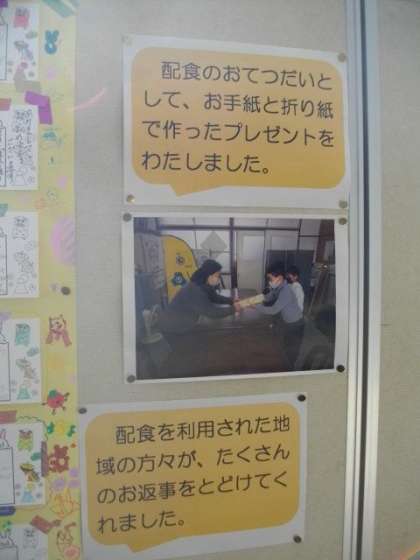 配食のおてつだいと
して、お手紙と折り紙
で作ったプレゼントを
わたしました。
配食を利用された地
域の方々が、たくさん
のお返事をとどけてく
れました。